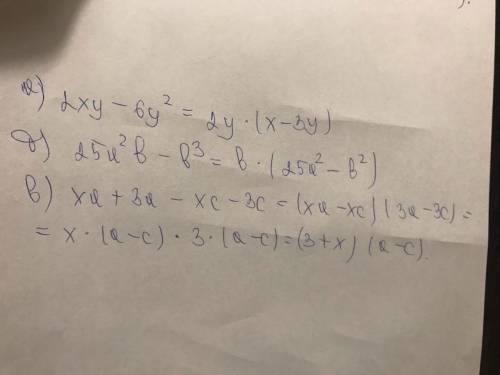 а) 2xy - 6y² = 2y · (x - 3y)
б) 25a²b - b³ = b · (25a² - b²)
в) xa + 3a - xc - 3c = (xa - xc) (3a - 3c) =
= x · (a - c) · 3 · (a - c) = (3 + x) (a - c).